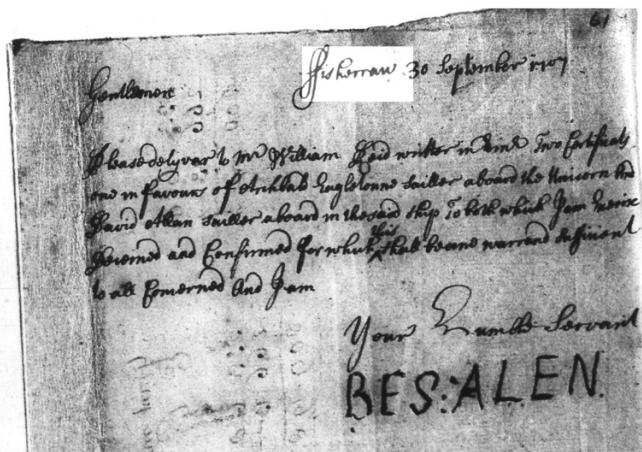 61
Gentlemen Fisherraw 30 September 1707
Please delyvar to Mr William Reid writter in Two Certificats
one in favours of Archbald sailler aboard the Unicorn and
David Allan sailler aboard in the said ship To both which I am
and Confirmed for which this shall be ane warrand suffisient
to all Conserned And I am
Your Humble Servant
BES:ALEN